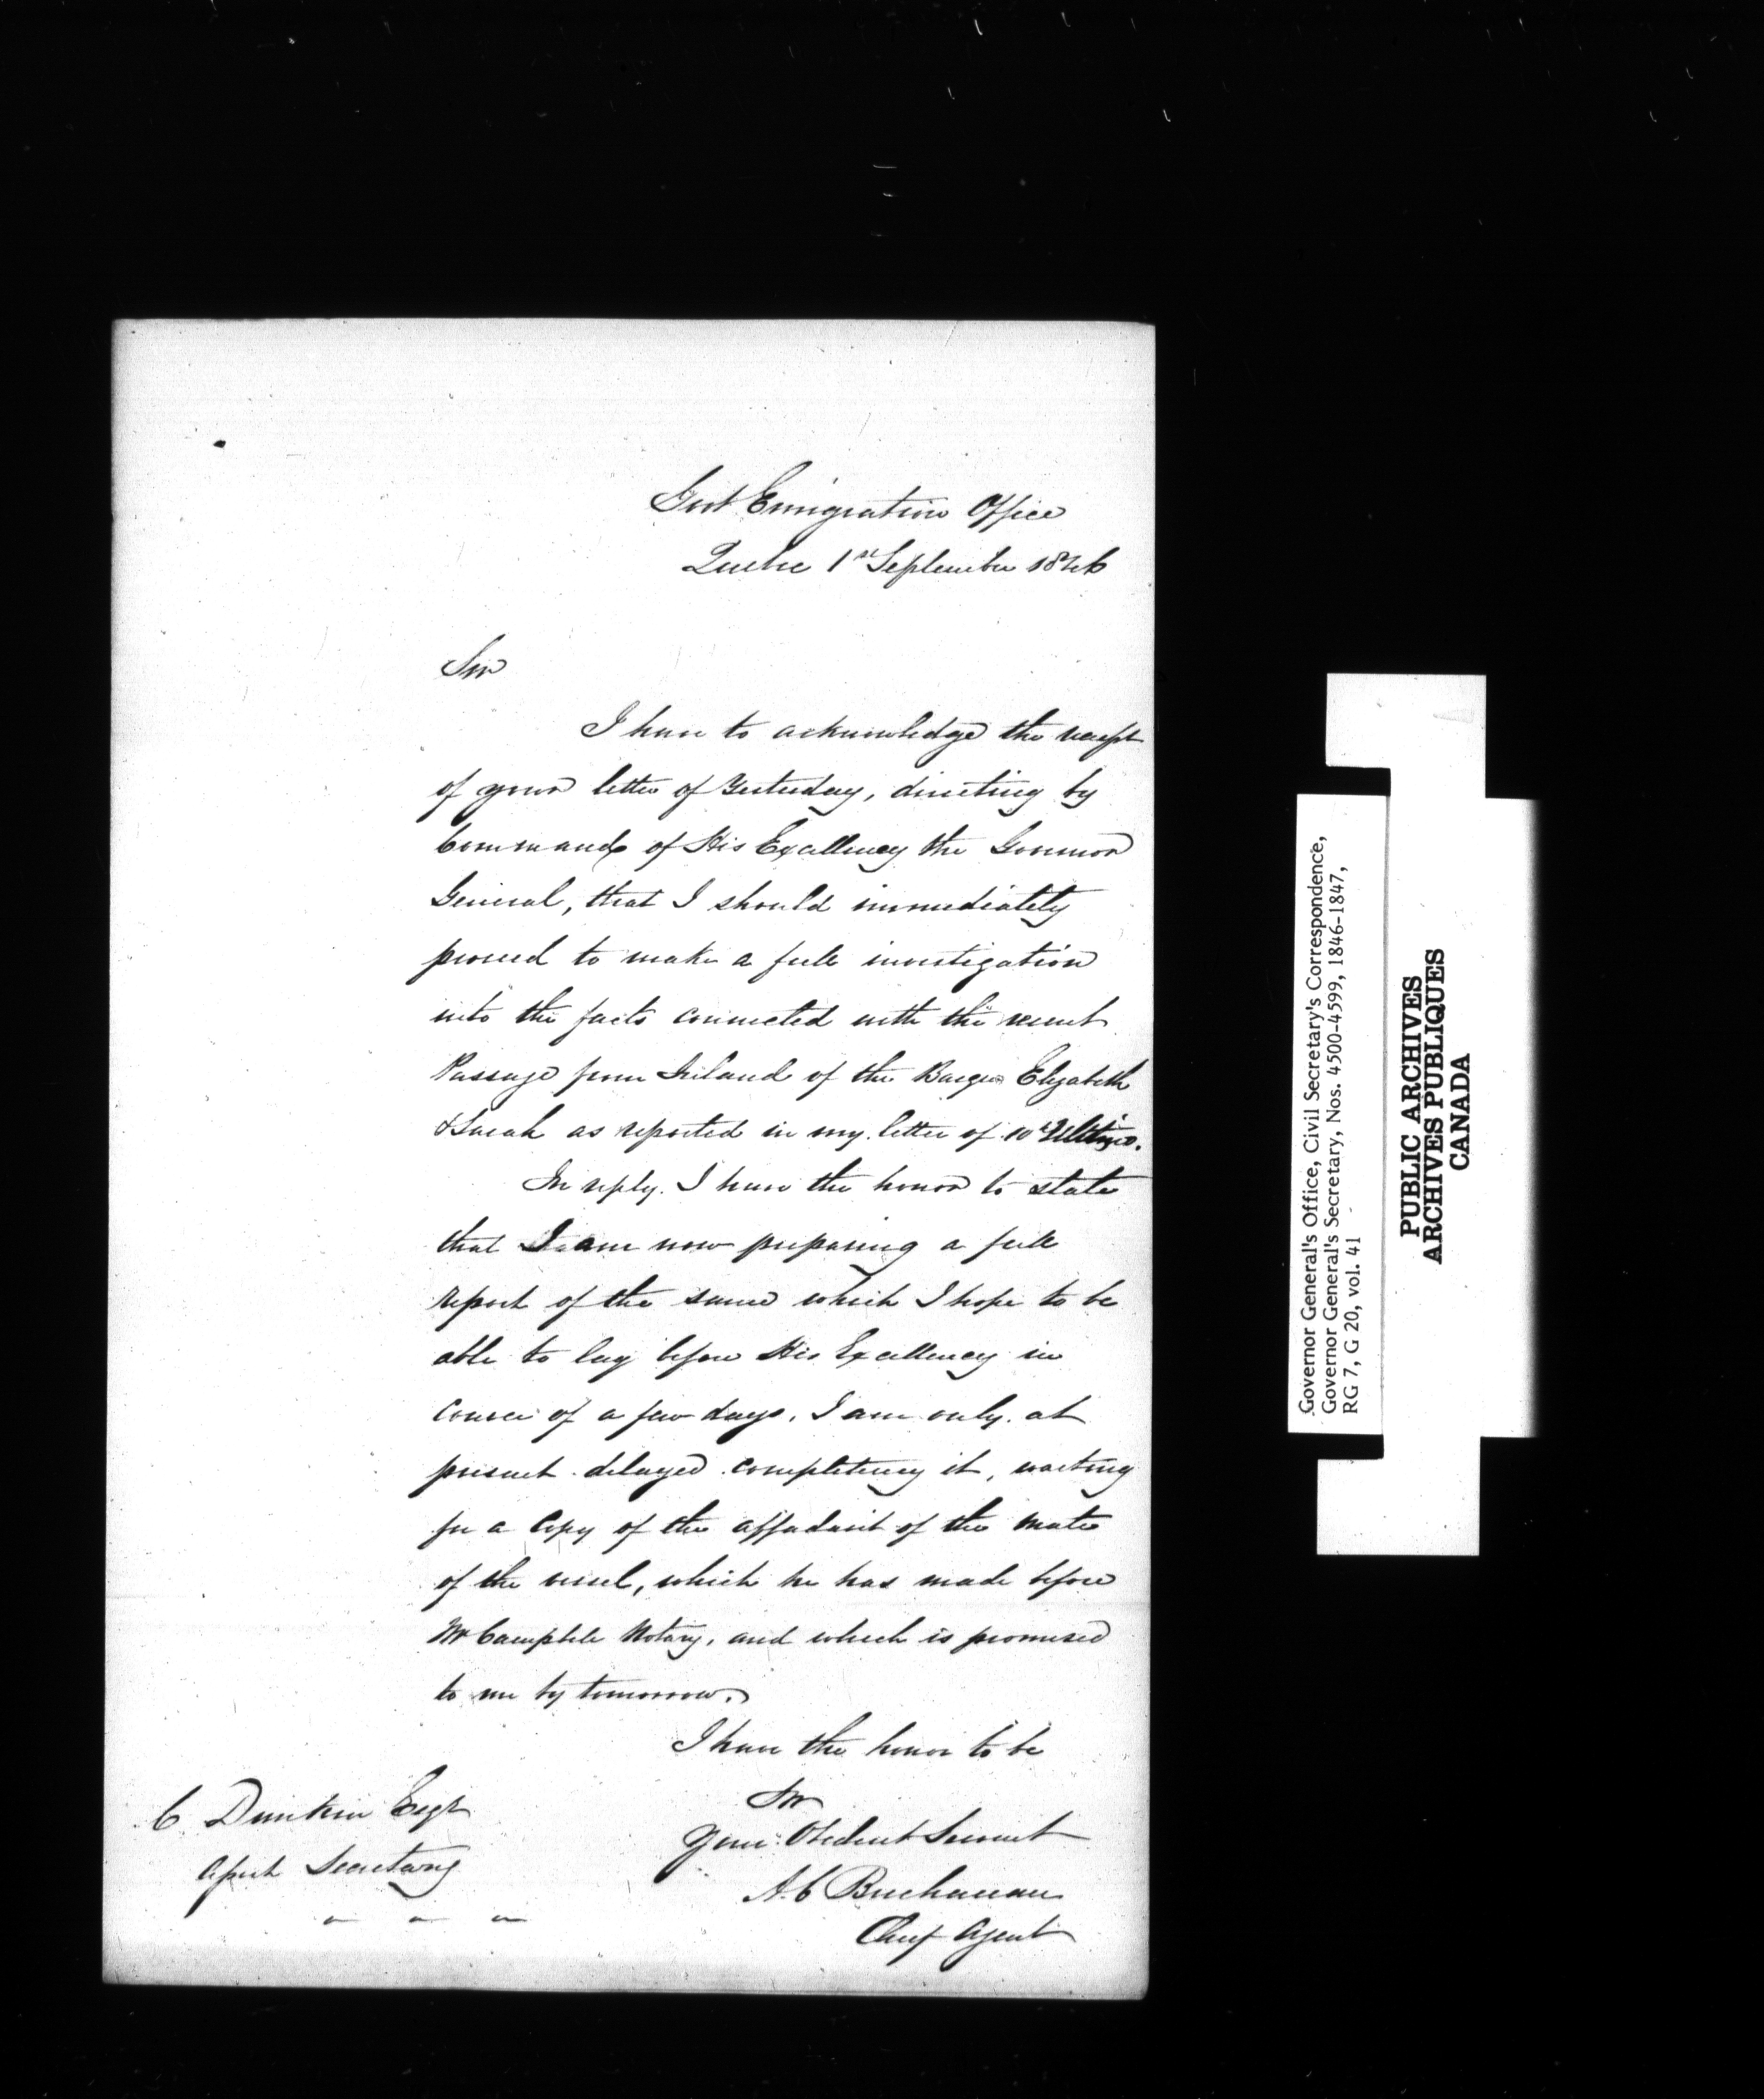 Govt Emigration Office
Quebec 1st September 1846
Sir
I have to acknowledge the receipt
of your letter of Yesterday, directing by
Command of His Excellency the Governor
General, that I should immediately
proceed to make a full investigation
into the facts connected with the recent
Passage from Ireland of the Barque Elizabeth
& Sarah as reported in my letter of 10th Ultimo.
In reply. I have the honor to state
that I am now preparing a full
report of the same which I hope to be
able to lay before His Excellency in
course of a few days. I am only at
present delayed completeing it, waiting
for a Copy of the affadavit of the Mate
of the vessel, which he has made before
Mr Campbell Notary, and which is promised
to me by tomorrow.
I have the honor to be
Sir
Your Obedient Servant
A.C Buchanan
Chief Agent
C Dunkin Esqr
Assist Secretary
Governor General's Office, Civil Secretary's Correspondence,
Governor General's Secretary, Nos. 4500-4599, 1846-1847,
RG 7, G 20, vol. 41
PUBLIC ARCHIVES
ARCHIVES PUBLIQUES
CANADA